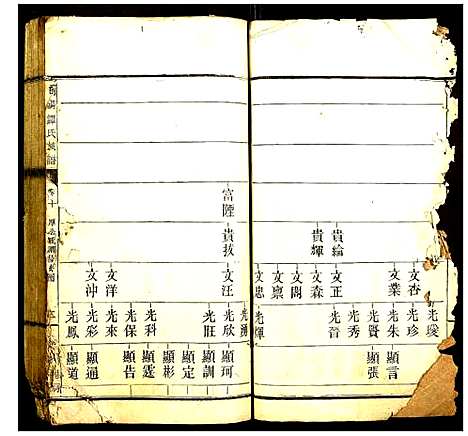 貴綸
貴輝
文杏
文業
文正
文森
文尚
文禀
文忠
光璞
光珍
光朱
光賢
光秀
光晉
光輝
顯言
顯張
富陞
貴拔
文汪
文洋
文沖
光欣
光旺
光科
光保
光來
光彩
光鳳
顯珂
顯訓
顯定
顯彬
顯霆
顯告
顯通
顯道
譚氏族譜